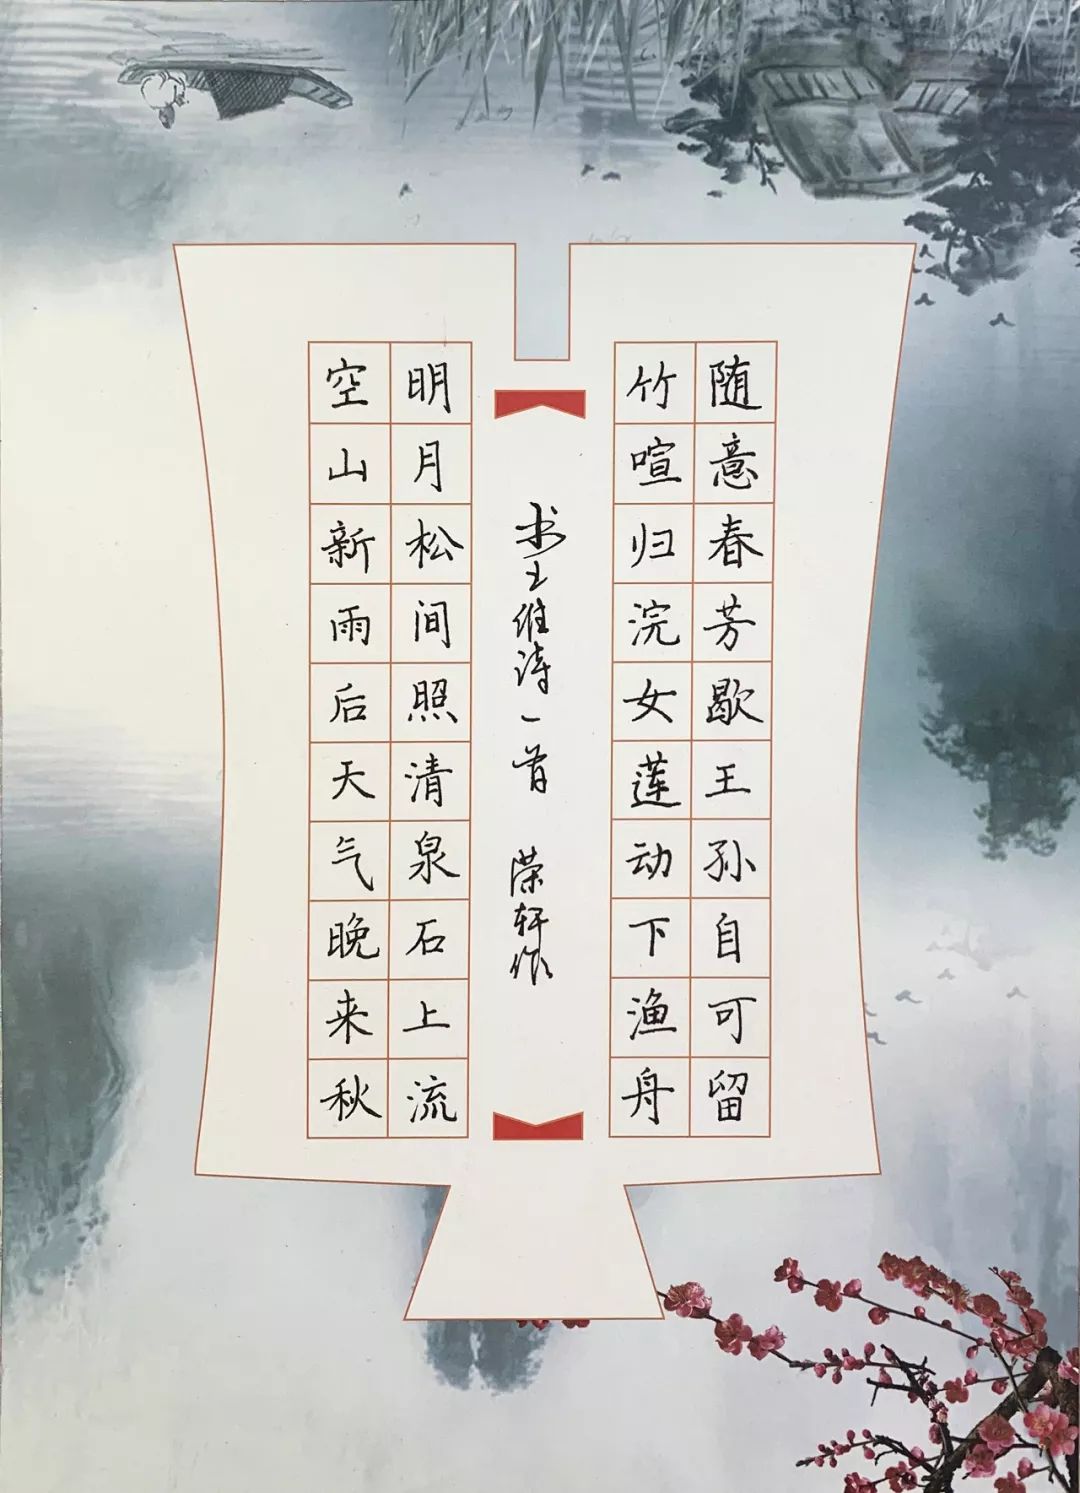 空山新雨后天气晚来秋
明月松间照清泉石上流
竹喧归浣女莲动下渔舟
随意春芳歇王孙自可留
书王维诗一首 荣轩作